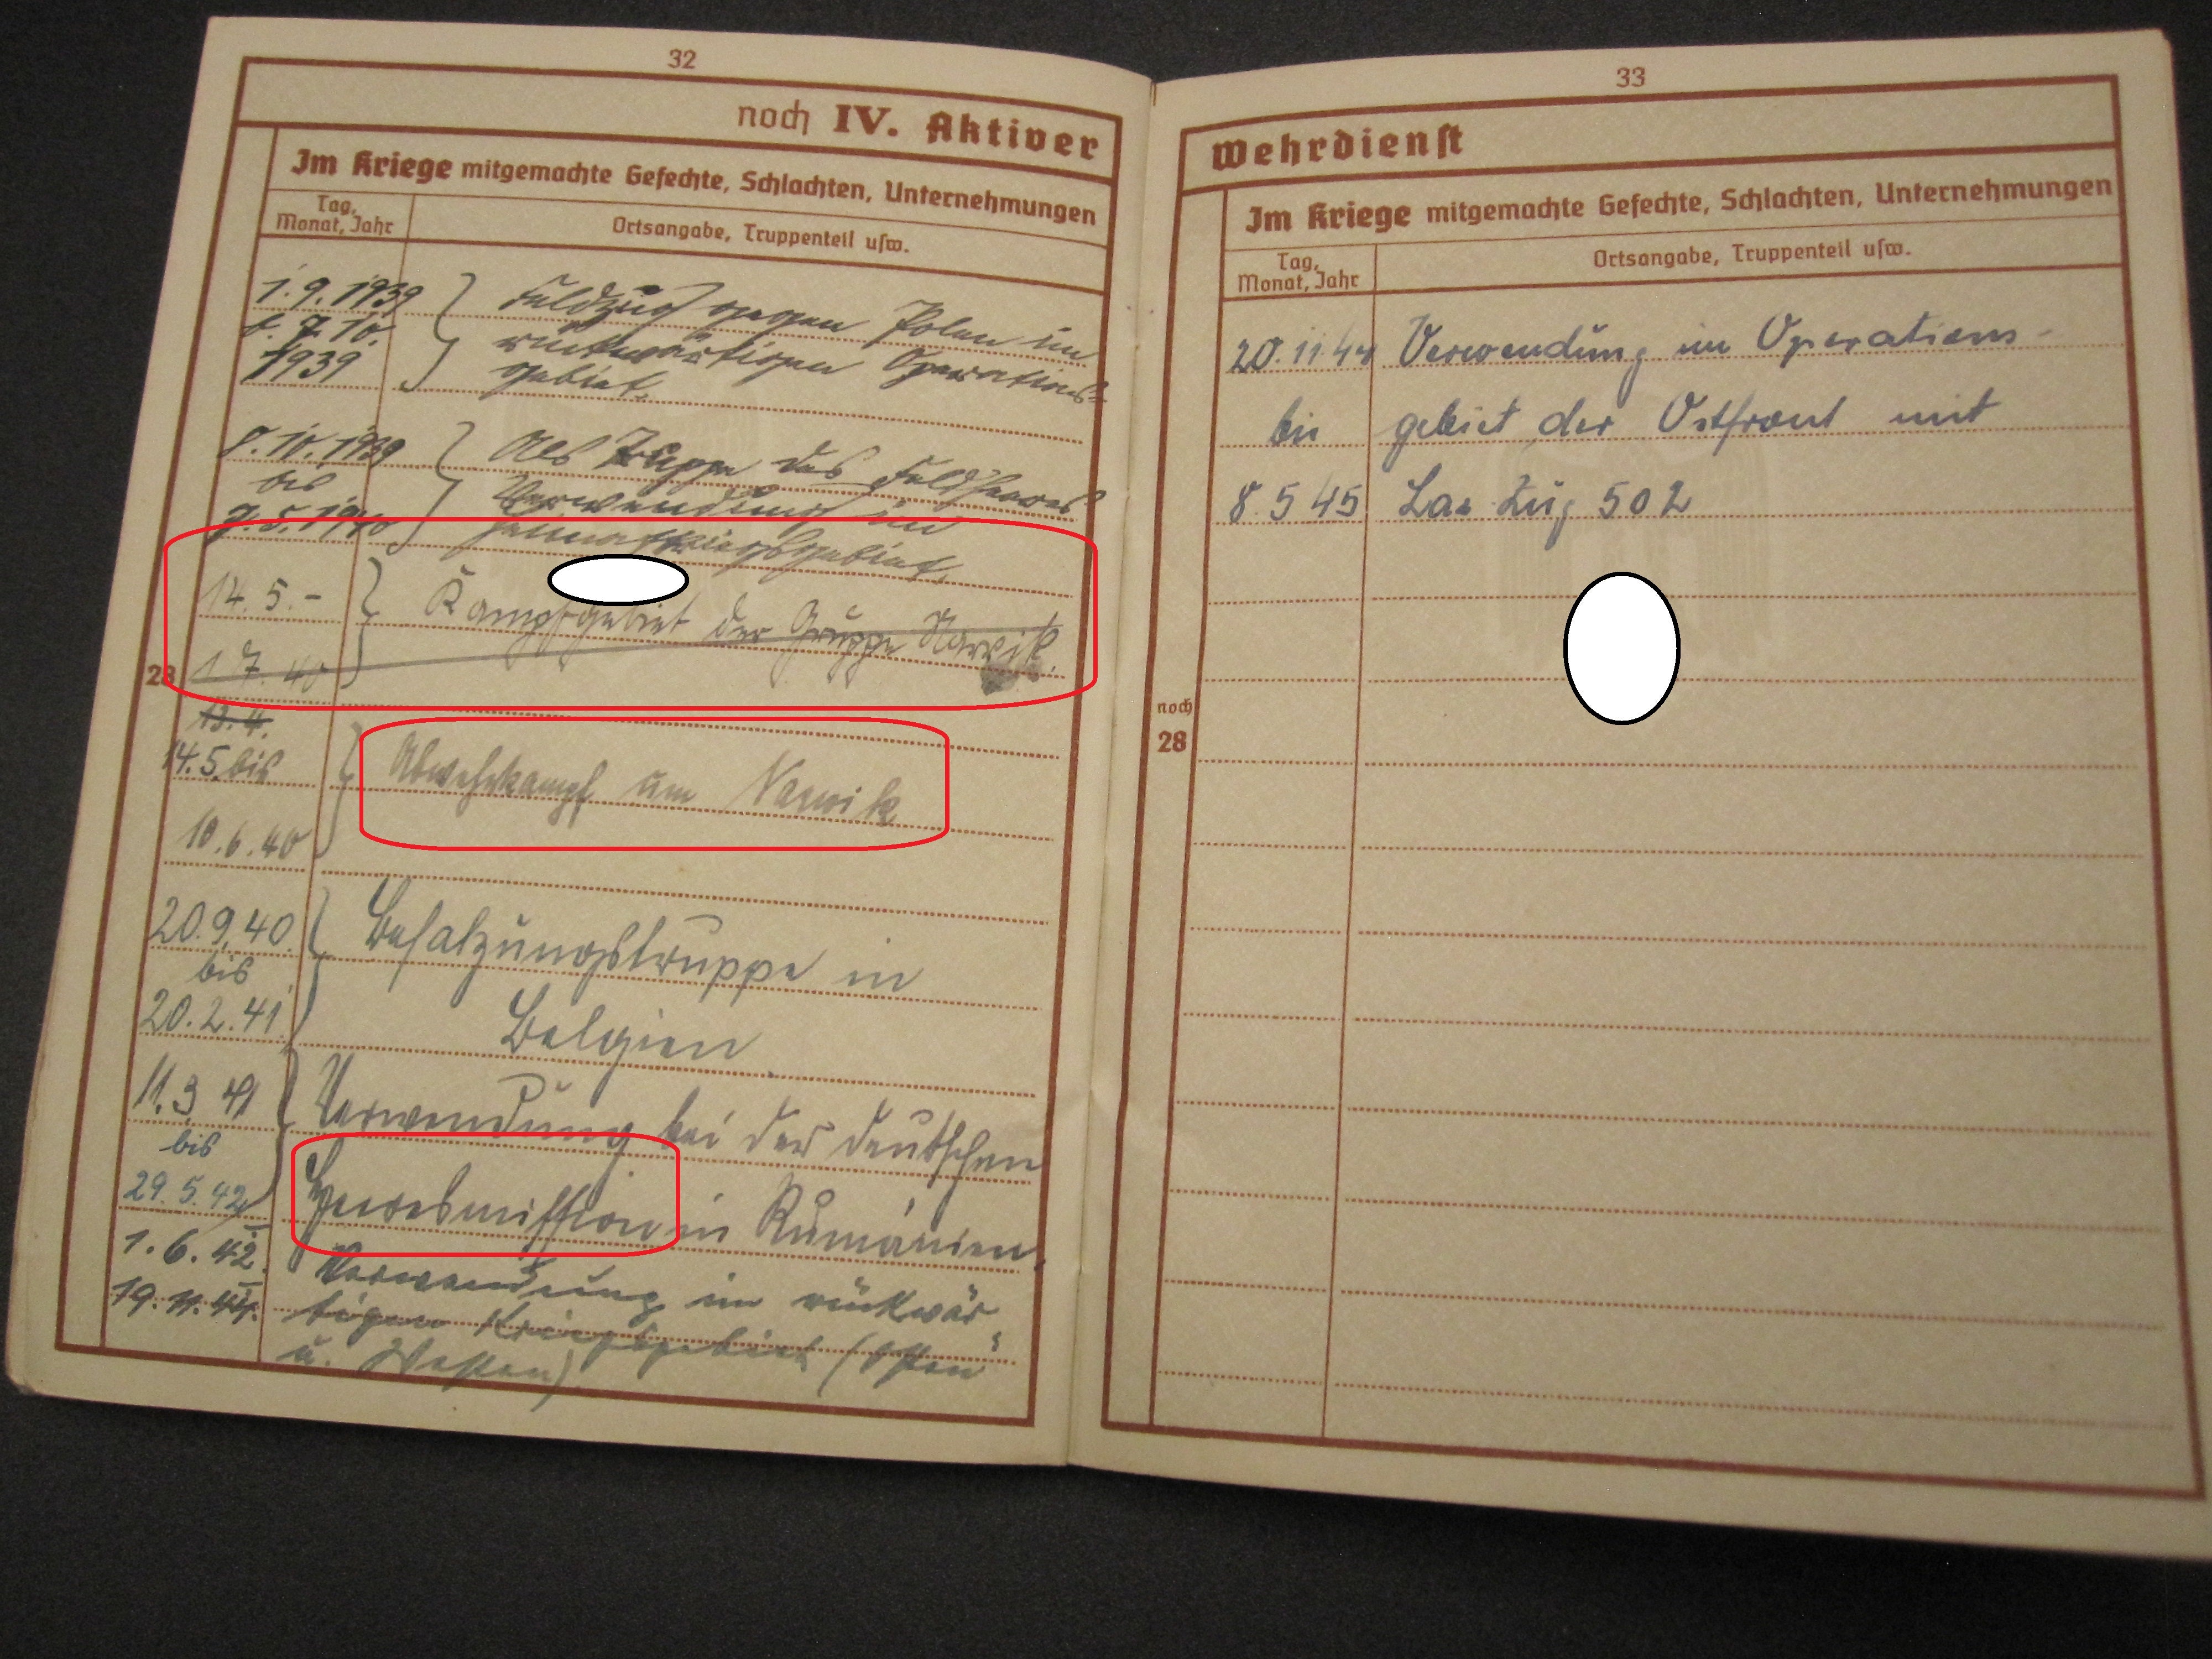 32
noch IV. Aktiver
Im Kriege mitgemachte Gefechte, Schlachten, Unternehmungen
Tag,
Monat, Jahr
Ortsangabe, Truppenteil usw.
1.9.1939 Feldzug gegen Polen im
b. 7.10. rückwärtigen Operations-
1939 gebiet.
8.10.1939 Als Truppe des Feldheeres
bis Verwendung im
9.5.1940 Heimatkriegsgebiet.
14.5.- Kampfgebiet der Gruppe Narvik.
1.7.40
28
13.4.
14.5. bis Abwehrkampf um Narvik
10.6.40
20.9.40. Besatzungstruppe in
bis
20.2.41. Belgien.
11.3.41 Verwendung bei der deutschen
bis
29.5.42 Heeresmission in Rumänien.
1.6.42. Verwendung im rückwär-
19.11.44. tigen Kriegsgebiet (Osten
u. Westen)
33
Wehrdienst
Im Kriege mitgemachte Gefechte, Schlachten, Unternehmungen
Tag,
Monat, Jahr
Ortsangabe, Truppenteil usw.
20.11.44 Verwendung im Operations-
bis gebiet der Ostfront mit
8.5.45 Laz. Zug 502
noch
28